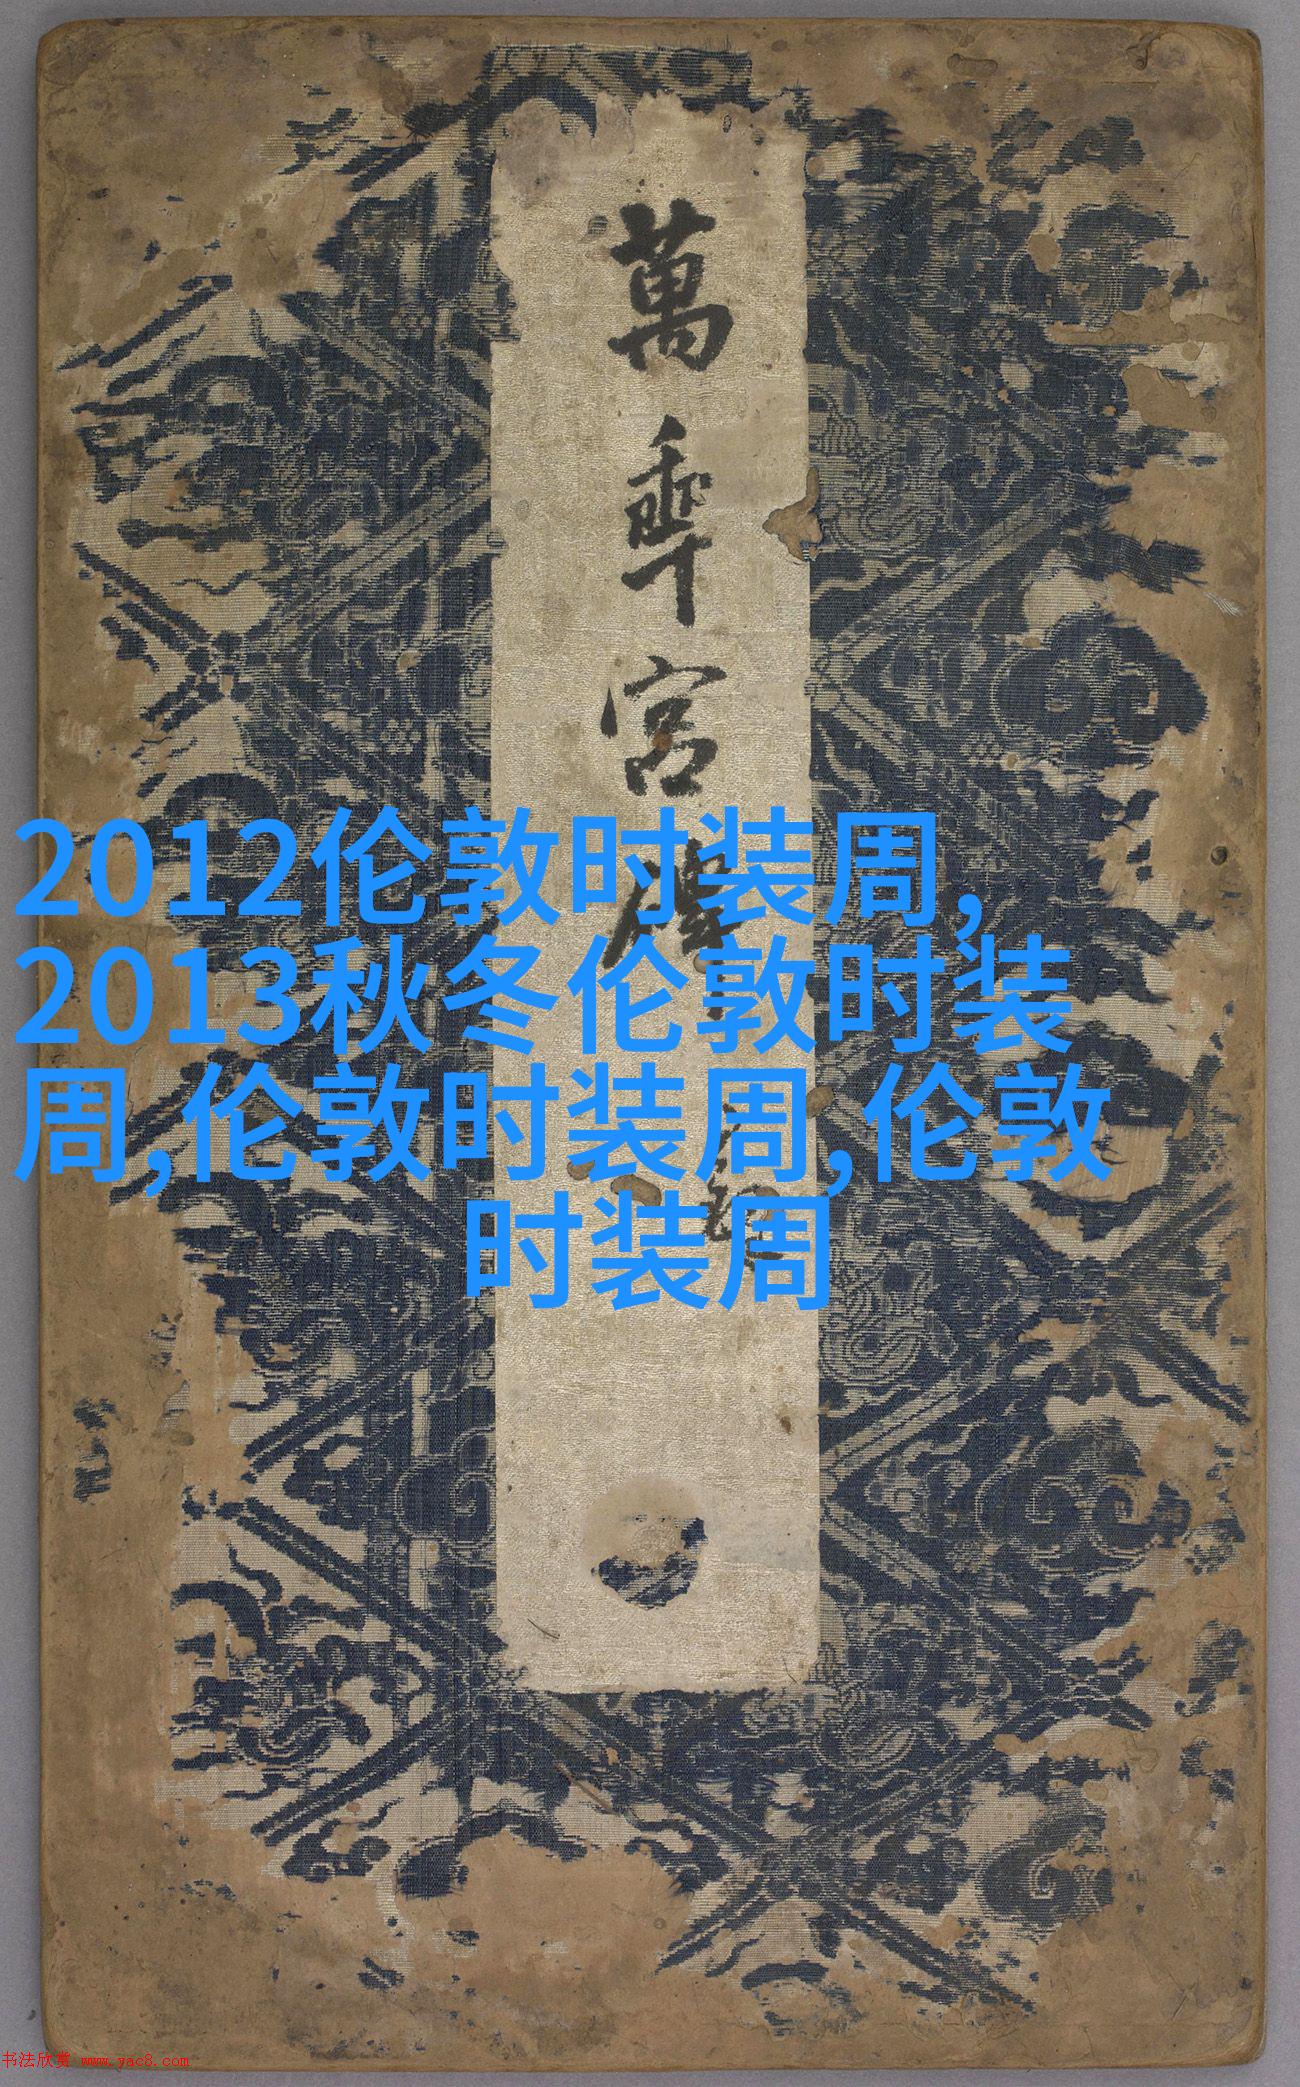 萬年宮碑
2012伦敦时装周,
2013秋冬伦敦时装
周,伦敦时装周,伦敦
时装周
书法欣赏 www.yac8.com